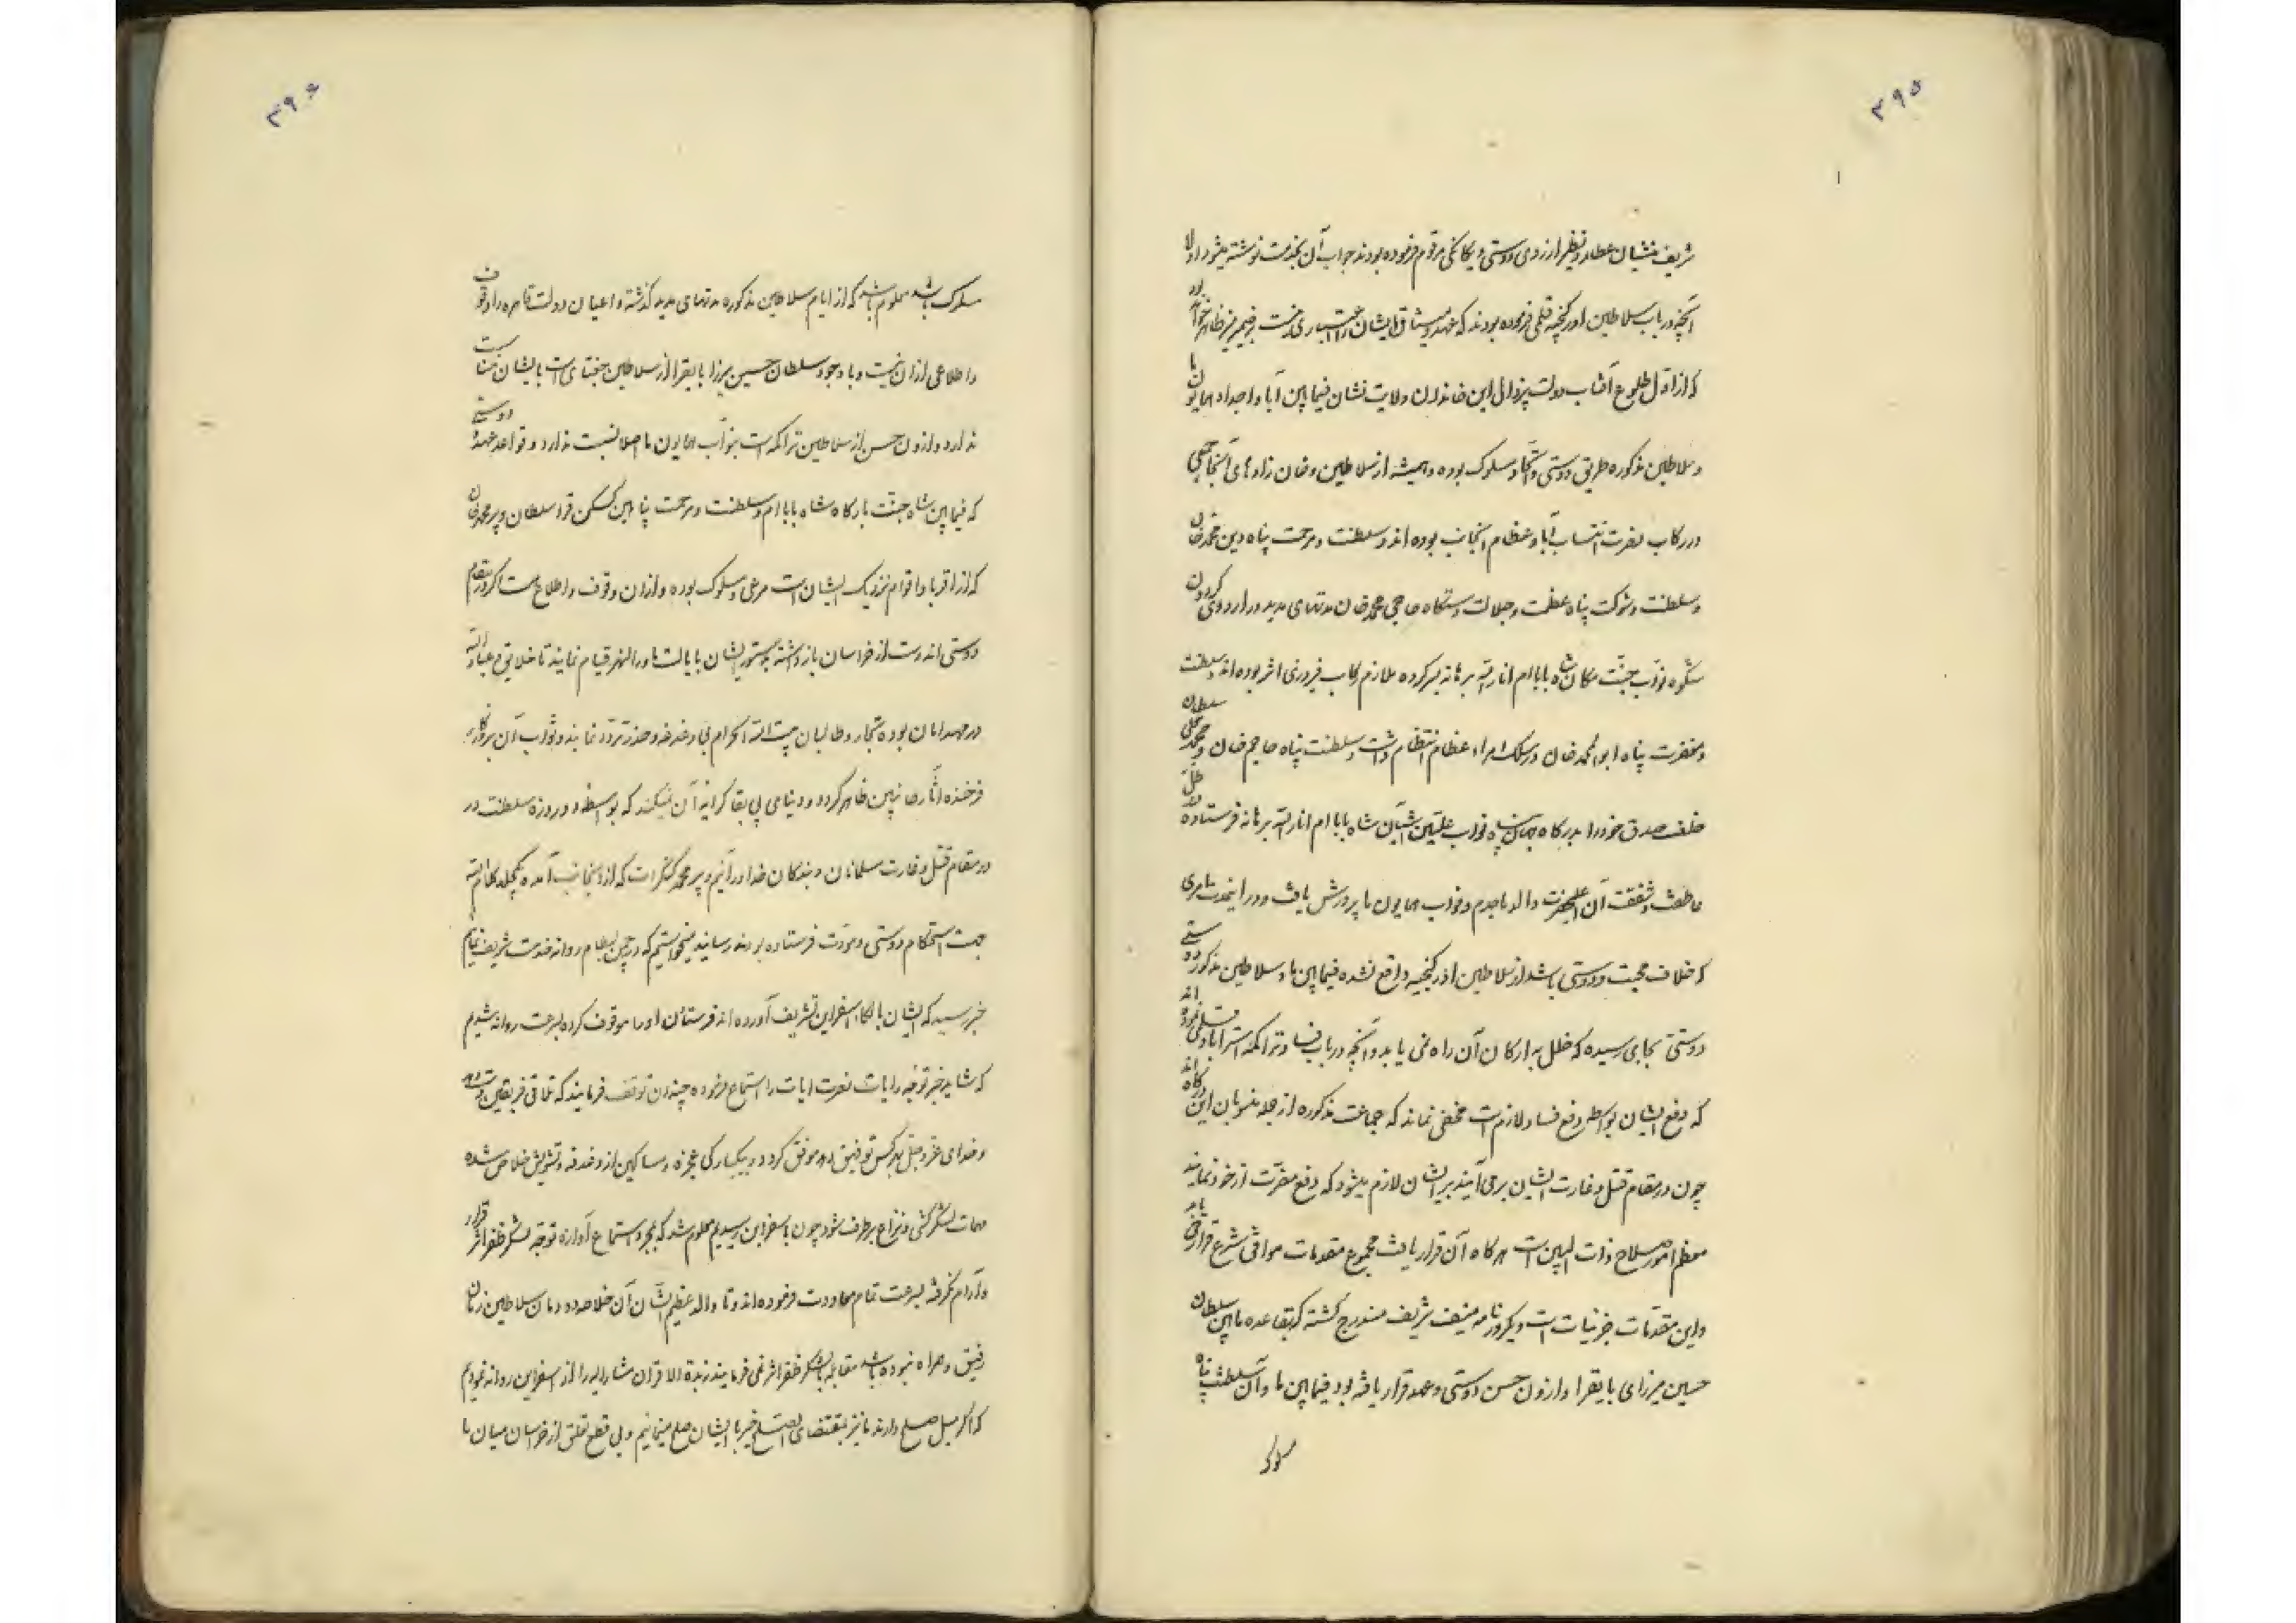 ۳۹۵
شریف منشیان عطارد نظیر از روی دوستی و یگانگی مرقوم فرموده بودند جواب آن بخدمت نوشته میشود اولا
آنچه در باب سلاطین اورگنجیه قلمی فرموده بودند که عهد و میثاق ایشان را اعتباری نیست بر ضمیر منیر ظاهر خواهد بود
که از اول طلوع آفتاب دولت بیزوال این خاندان ولایت نشان فیمابین آبا و اجداد همایون ما
و سلاطین مذکوره طریق دوستی و اتحاد مسلوک بوده و همیشه از سلاطین و خان زاد های آنجا جمعی
در رکاب نصرت انتساب آباء عظام اینجانب بوده اند و سلطنت و مرحمت پناه دین محمد خان
و سلطنت و شوکت پناه عظمت و جلالت دستگاه حاجی محمد خان مدتهای مدید در اردوی گردون
شکوه نواب جنت مکان شاه بابام انار الله برهانه بسر کرده ملازم رکاب فیروزی اثر بوده اند و سلطنت
و مغفرت پناه ابوالمحمد خان در سلک امراء عظام انتظام داشت و سلطنت پناه حاجم خان و محمد قلی سلطان
خلف صدق خود را بدرگاه جهان پناه نواب علیین آشیان شاه بابام انار الله برهانه فرستاده در ظل
عاطفت و شفقت آن اعلیحضرت والد ماجدم و نواب همایون ما پرورش یافت و در اینمدت امری
که خلاف محبت و دوستی باشد از سلاطین اورگنجیه واقع نشده فیمابین ما و سلاطین مذکور دوستی
دوستی بجایی رسیده که خلل به ارکان آن راه نمی یابد و آنچه در باب فساد تراکمه استراباد قلمی نموده اند
که دفع ایشان بواسطه دفع فساد لازم است مخفی نماند که جماعت مذکوره از جمله منسوبان این درگاه اند
چون در مقام قتل و غارت ایشان برمی آیند بر ایشان لازم میشود که دفع مضرت از خود نمایند
معظم امور صلاح ذات البین است هر گاه آن قرار یافت مجموع مقدمات موافق شرع قرار می یابد
و این مقدمات جزئیات است و دیگر در نامه منیف شریف مندرج گشته که بقاعده مابین سلطان
حسین میرزای بایقرا و اوزون حسن دوستی و عهد قرار یافته بود فیمابین ما و آن سلطنت پناه
مسلوک
۳۹۶
مسلوک باشد معلوم باشد که از ایام سلاطین مذکوره مدتهای مدید گذشته و اعیان دولت قاهره را وقوف
و اطلاعی از آن نیست و با وجود سلطان حسین میرزا بایقرا از سلاطین جغتای است بایشان مناسبت
ندارد و اوزون حسن از سلاطین تراکمه است بنواب همایون ما اصلا نسبت ندارد و قواعد عهد دوستی
که فیمابین شاه جنت بارگاه شاه بابام و سلطنت و مرحمت پناهین کسکن قرا سلطان و پیر محمد خان
که از اقربا و اقوام نزدیک ایشان است مرعی و مسلوک بوده و از آن وقوف و اطلاع هست اگر در مقام
دوستی اند دست از خراسان باز داشته بدستور ایشان بایالت ماوراءالنهر قیام نمایند تا خلایق و عباد الله
در مهد امان بوده تجار و طالبان بیت الله الحرام بی دغدغه و حذر تردد نمایند و ثواب آن بروزگار
فرخنده آثار جانبین ظاهر گردد و دنیای بی بقا کرایه آن نمیکند که بواسطه دو روزه سلطنت در
در مقام قتل و غارت مسلمانان و بندگان خدا درآئیم و پیر محمد کنگرات که از آنجانب آمده یکجلد کلام الله
جهت استحکام دوستی و مودت فرستاده بودند رسانید میخواستیم که در چمن بسطام روانه خدمت شریف نمائیم
خبر رسید که ایشان بالکاء اسفراین تشریف آورده اند فرستادن او را موقوف کرده بسرعت روانه شدیم
که شاید خبر توجه رایات نصرت ایات را استماع فرموده چندان توقف فرمایند که تلاقی فریقین دست دهد
و خدای عز و جل هر کس توفیق دهد موفق گردد و بیکبارگی عجزه و مساکین از دغدغه و تشویش خلاص شده
مهمات لشکرکشی و نزاع برطرف شود چون باسفراین رسیدیم معلوم شد که بمجرد استماع آوازه توجه لشکر ظفر اثر قرار
و آرام نگرفته بسرعت تمام معاودت فرموده اند و تا والد عظیم الشان آن خلاصه دودمان سلاطین زمان
رفیق و همراه نبوده باشد مقابله با لشکر ظفر اثر نمی فرمایند زبدة الاقران مشارالیه را از اسفراین روانه نمودیم
که اگر میل صلح دارند ما نیز بمقتضای الصلح خیر با ایشان صلح مینمائیم و بی قطع تعلق از خراسان میان ما